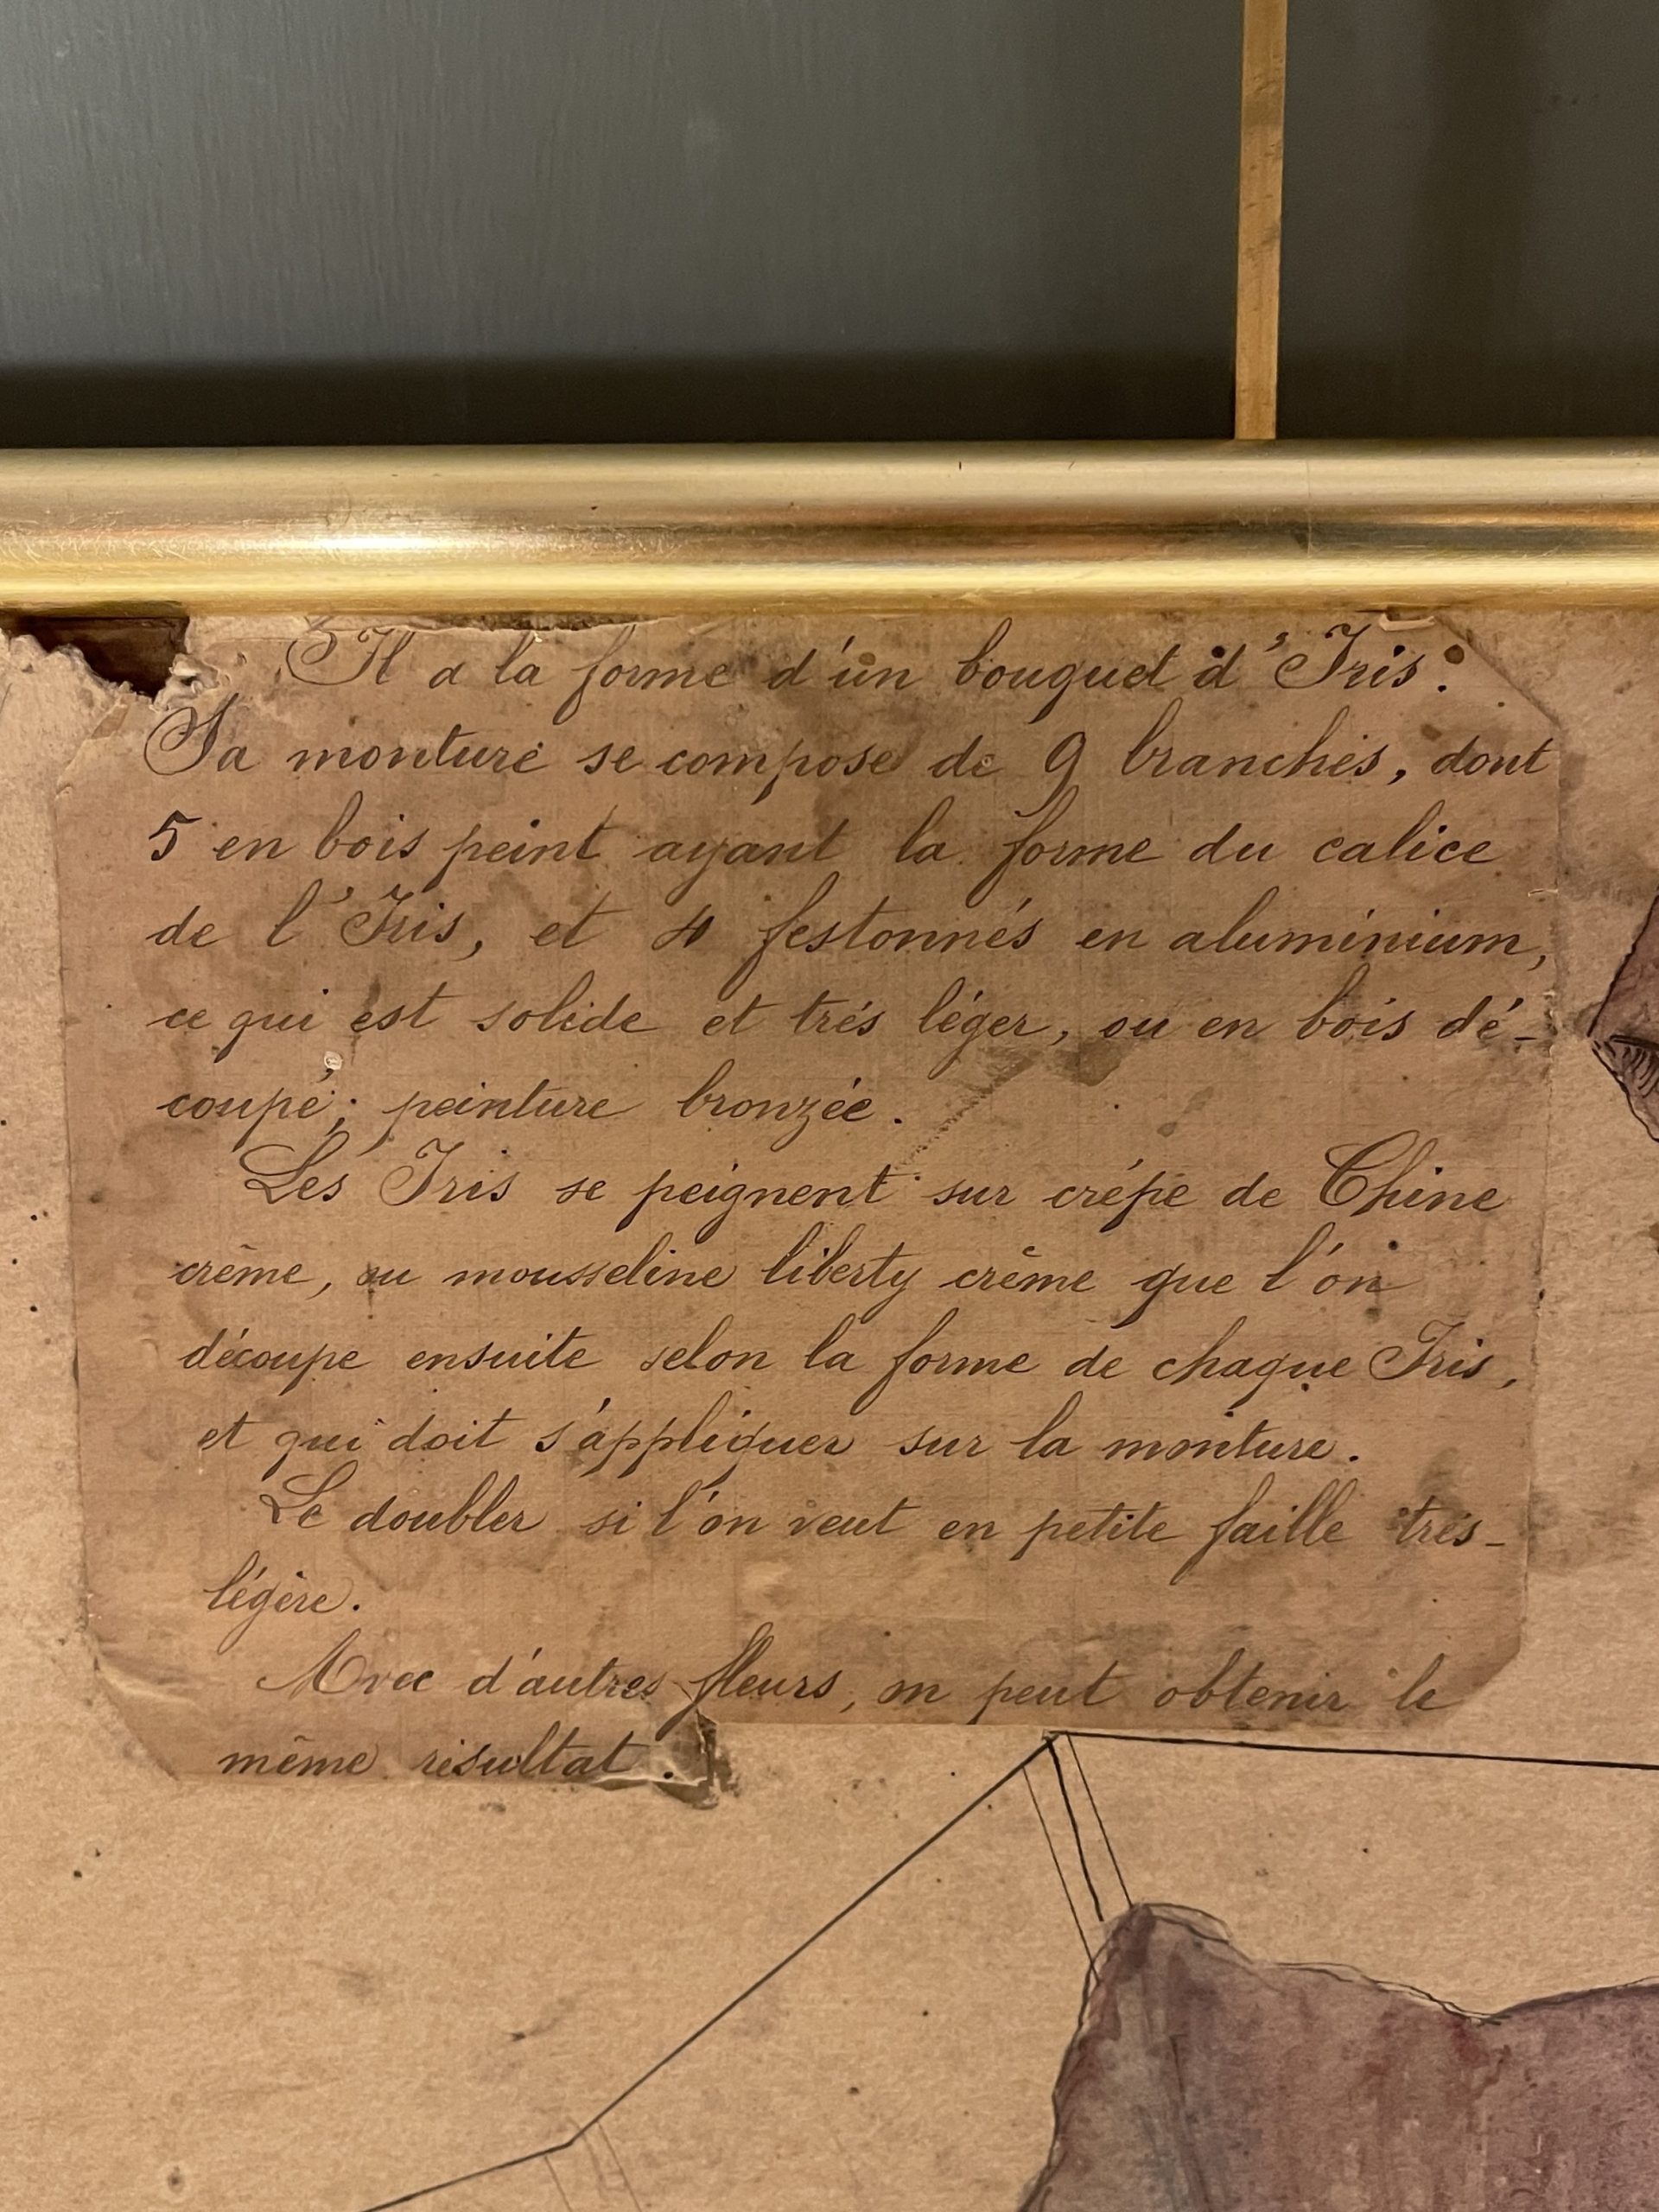 Il a la forme d'un bouquet d'Iris.
Sa monture se compose de 9 branches, dont
5 en bois peint ayant la forme du calice
de l'Iris, et 4 festonnés en aluminium,
ce qui est solide et trés léger, ou en bois dé-
coupé; peinture bronzée.
Les Iris se peignent sur crépe de Chine
crême, ou mousseline liberty crême que l'on
découpe ensuite selon la forme de chaque Iris,
et qui doit s'appliquer sur la monture.
Le doubler si l'on veut en petite faille trés-
légère.
Avec d'autres fleurs, on peut obtenir le
même résultat.